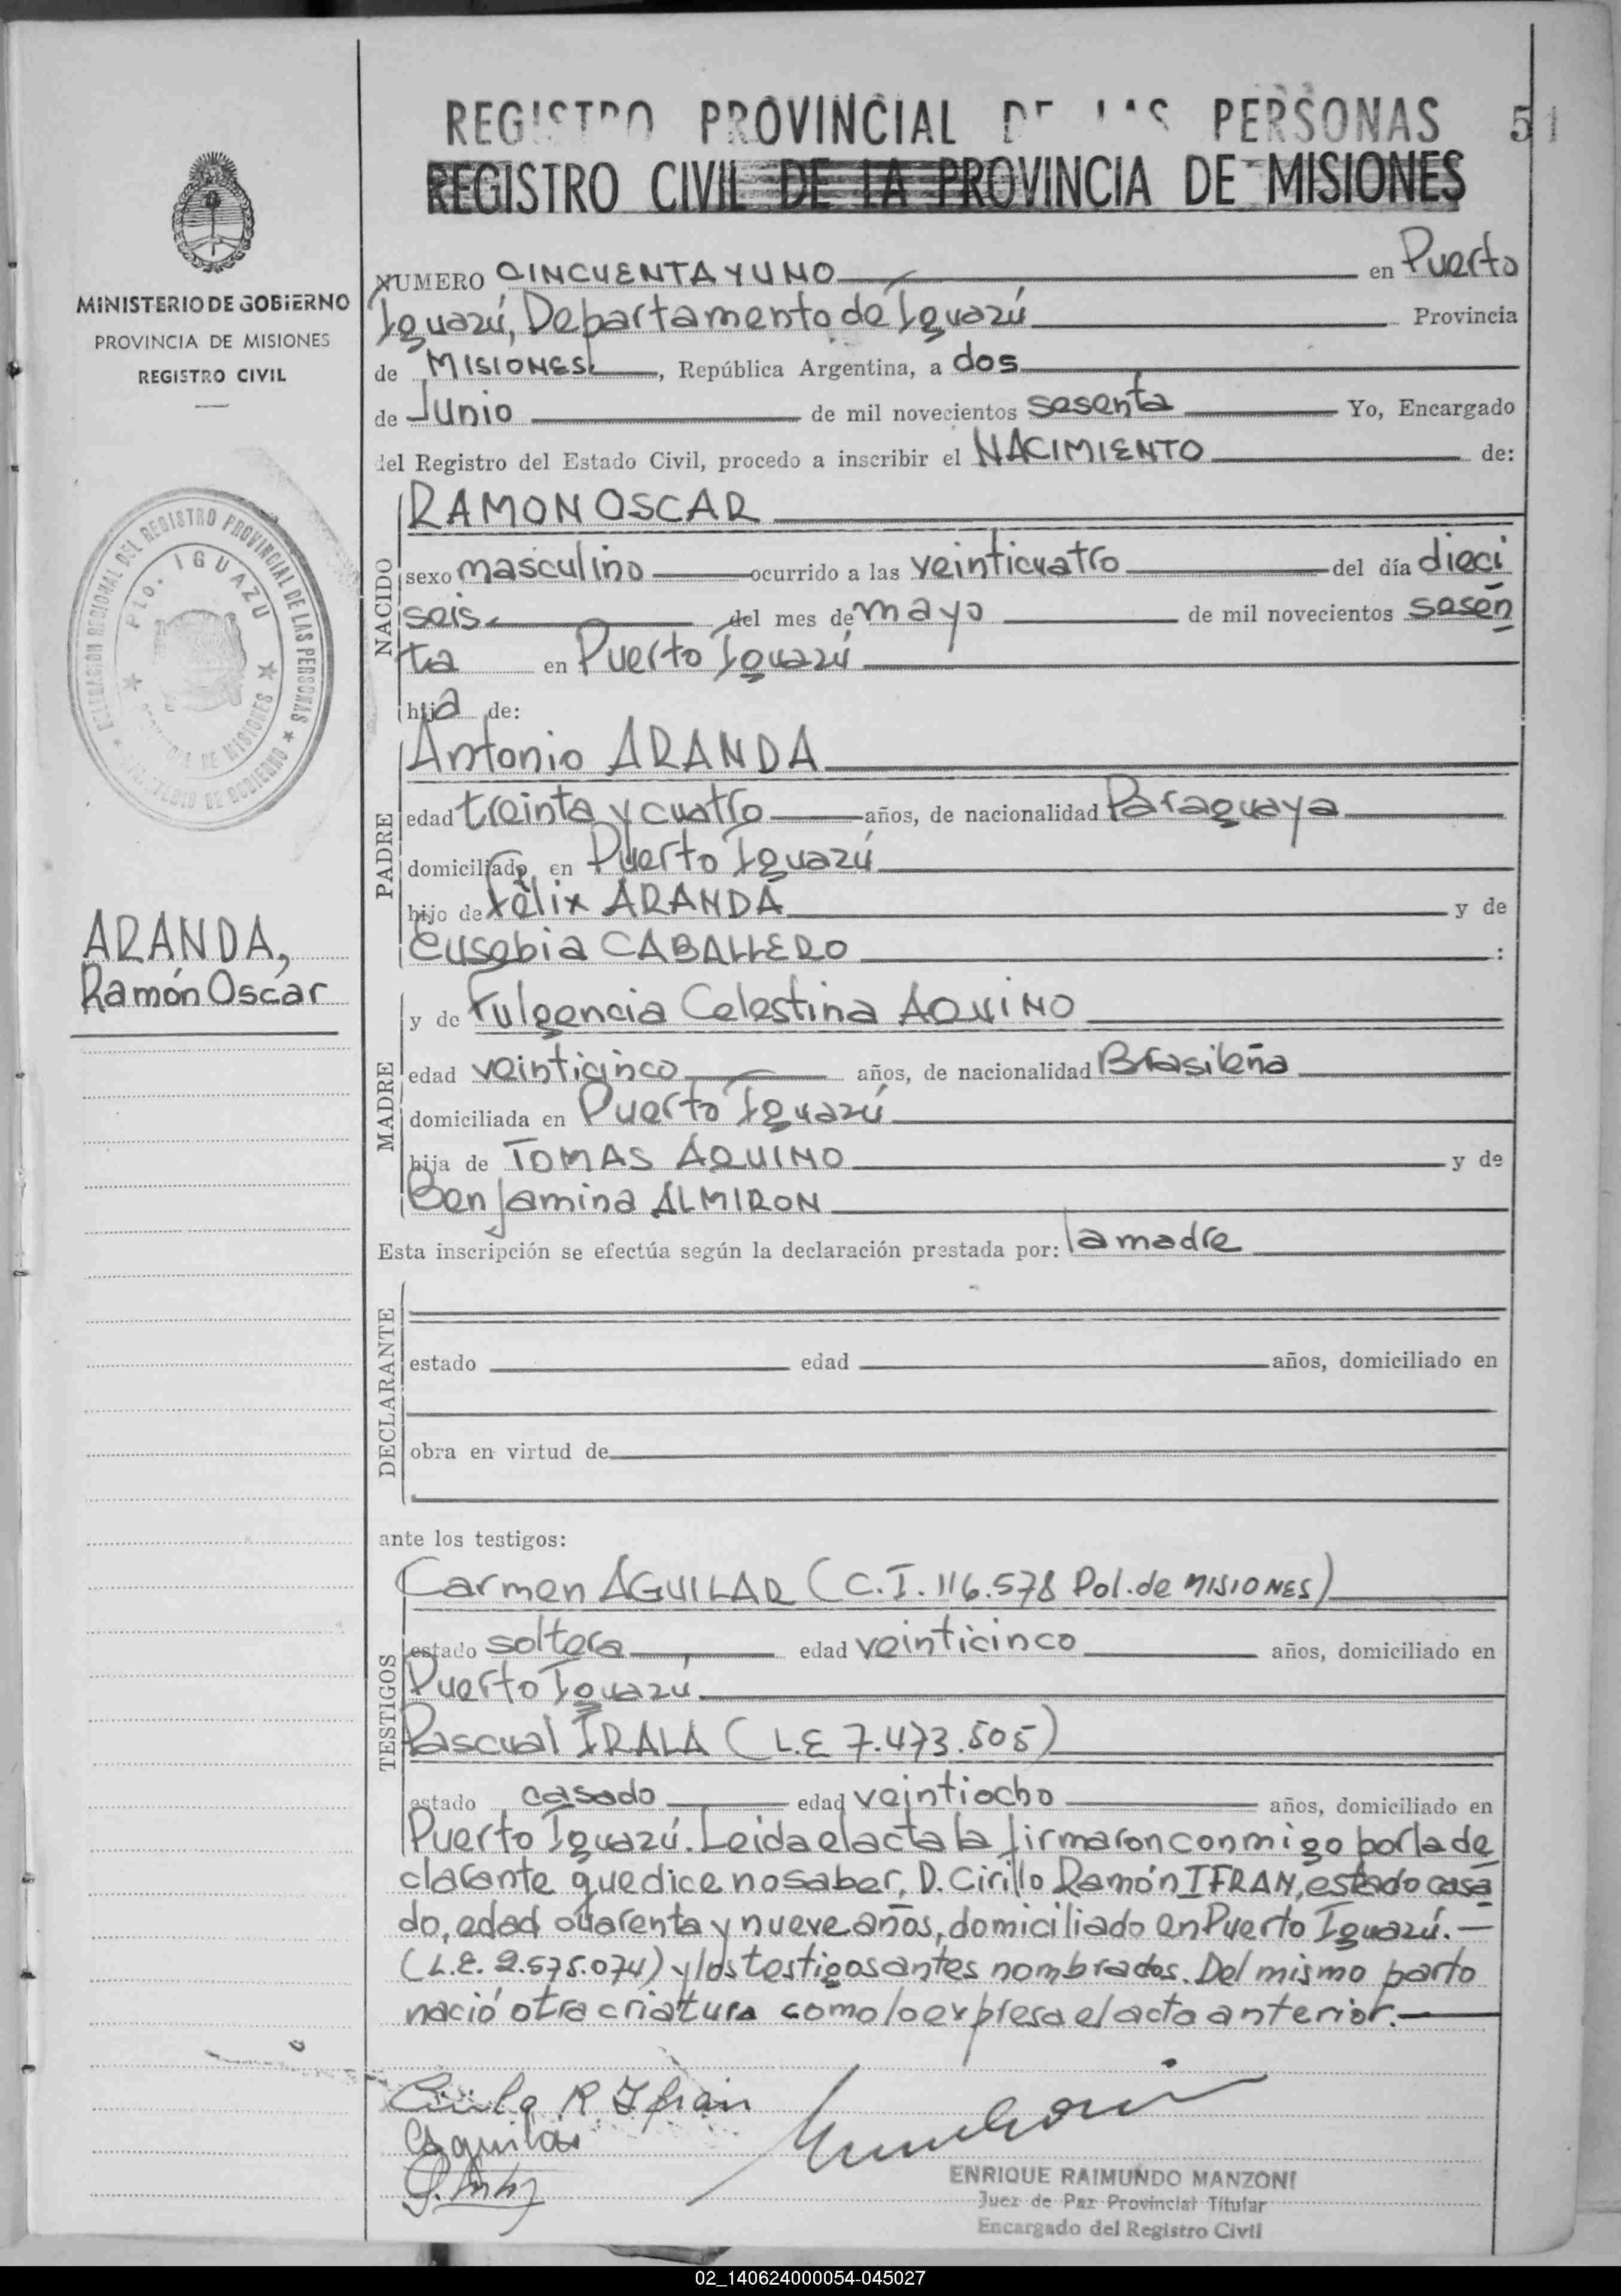 REGISTRO PROVINCIAL DE LAS PERSONAS 51
REGISTRO CIVIL DE LA PROVINCIA DE MISIONES
MINISTERIO DE GOBIERNO
PROVINCIA DE MISIONES
REGISTRO CIVIL
DELEGACION REGIONAL DEL REGISTRO PROVINCIAL DE LAS PERSONAS
Pto. IGUAZU
PROVINCIA DE MISIONES
MINISTERIO DE GOBIERNO
ARANDA,
Ramón Oscar
NUMERO CINCUENTA Y UNO en Puerto
Iguazú, Departamento de Iguazú Provincia
de MISIONES, República Argentina, a dos
de Junio de mil novecientos sesenta Yo, Encargado
del Registro del Estado Civil, procedo a inscribir el NACIMIENTO de:
NACIDO
RAMON OSCAR
sexo masculino ocurrido a las veinticuatro del día dieci
seis del mes de mayo de mil novecientos sesen
ta en Puerto Iguazú
hija de:
PADRE
Antonio ARANDA
edad treinta y cuatro años, de nacionalidad Paraguaya
domiciliado en Puerto Iguazú
hijo de Félix ARANDA y de
Eusebia CABALLERO :
MADRE
y de Fulgencia Celestina AQUINO
edad veinticinco años, de nacionalidad Brasileña
domiciliada en Puerto Iguazú
hija de TOMAS AQUINO y de
Benjamina ALMIRON
Esta inscripción se efectúa según la declaración prestada por: la madre
DECLARANTE
estado edad años, domiciliado en
obra en virtud de
ante los testigos:
TESTIGOS
Carmen AGUILAR (C.I. 116.578 Pol. de MISIONES)
estado soltera edad veinticinco años, domiciliado en
Puerto Iguazú
Pascual IRALA (L.E 7.473.505)
estado casado edad veintiocho años, domiciliado en
Puerto Iguazú. Leida el acta la firmaron conmigo por la de
clarante que dice no saber, D. Cirillo Ramón IFRAN, estado casa
do, edad cuarenta y nueve años, domiciliado en Puerto Iguazú.—
(L.E. 2.575.074) y los testigos antes nombrados. Del mismo parto
nació otra criatura como lo expresa el acta anterior.—
Cirilo R Ifran
Aguilar
ENRIQUE RAIMUNDO MANZONI
Juez de Paz Provincial Titular
Encargado del Registro Civil
02_140624000054-045027